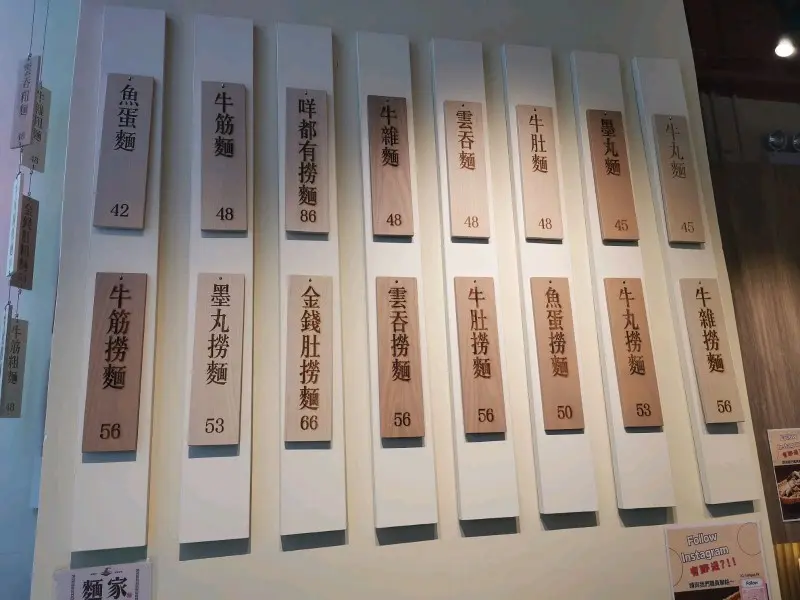 魚蛋麵
42
牛筋麵
48
咩都有撈麵
86
牛雜麵
48
雲吞麵
48
牛肚麵
48
墨丸麵
45
牛丸麵
45
牛筋撈麵
56
墨丸撈麵
53
金錢肚撈麵
66
雲吞撈麵
56
牛肚撈麵
56
魚蛋撈麵
50
牛丸撈麵
53
牛雜撈麵
56
麵家
Follow
Instagram
有即過?!!